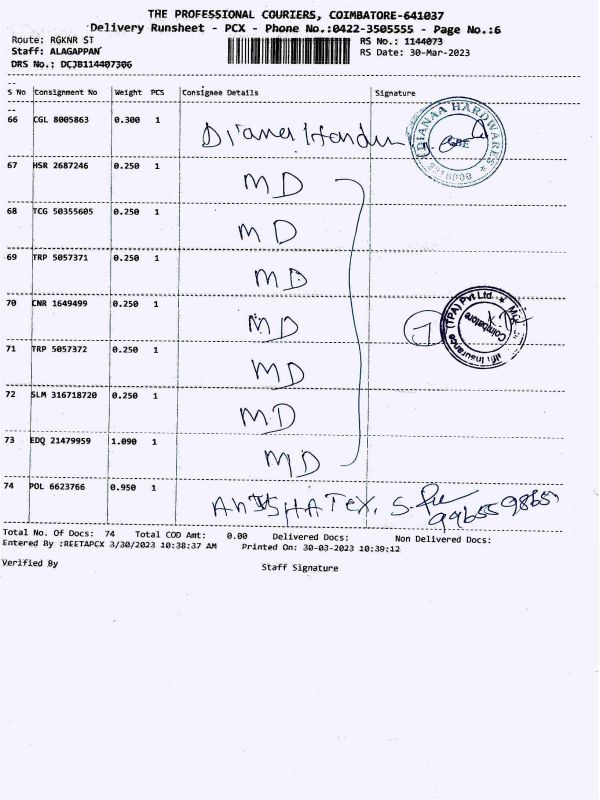 THE PROFESSIONAL COURIERS, COIMBATORE-641037
Delivery Runsheet - PCX - Phone No.:0422-3505555 - Page No.:6
Route: RGKNR ST RS No.: 1144073
Staff: ALAGAPPAN RS Date: 30-Mar-2023
DRS No.: DCJB114407306
S No Consignment No Weight PCS Consignee Details Signature
66 CGL 8005863 0.300 1 DIANAA HARDWARES
67 HSR 2687246 0.250 1 MD
68 TCG 50355605 0.250 1 MD
69 TRP 5057371 0.250 1 MD
70 CNR 1649499 0.250 1 MD 7 Insurance (TPA) Pvt Ltd. Coimbatore
71 TRP 5057372 0.250 1 MD
72 SLM 316718720 0.250 1 MD
73 EDQ 21479959 1.090 1 MD
74 POL 6623766 0.950 1 TEX.
Total No. Of Docs: 74 Total COD Amt: 0.00 Delivered Docs: Non Delivered Docs:
Entered By :REETAPCX 3/30/2023 10:38:37 AM Printed On: 30-03-2023 10:39:12
Verified By Staff Signature